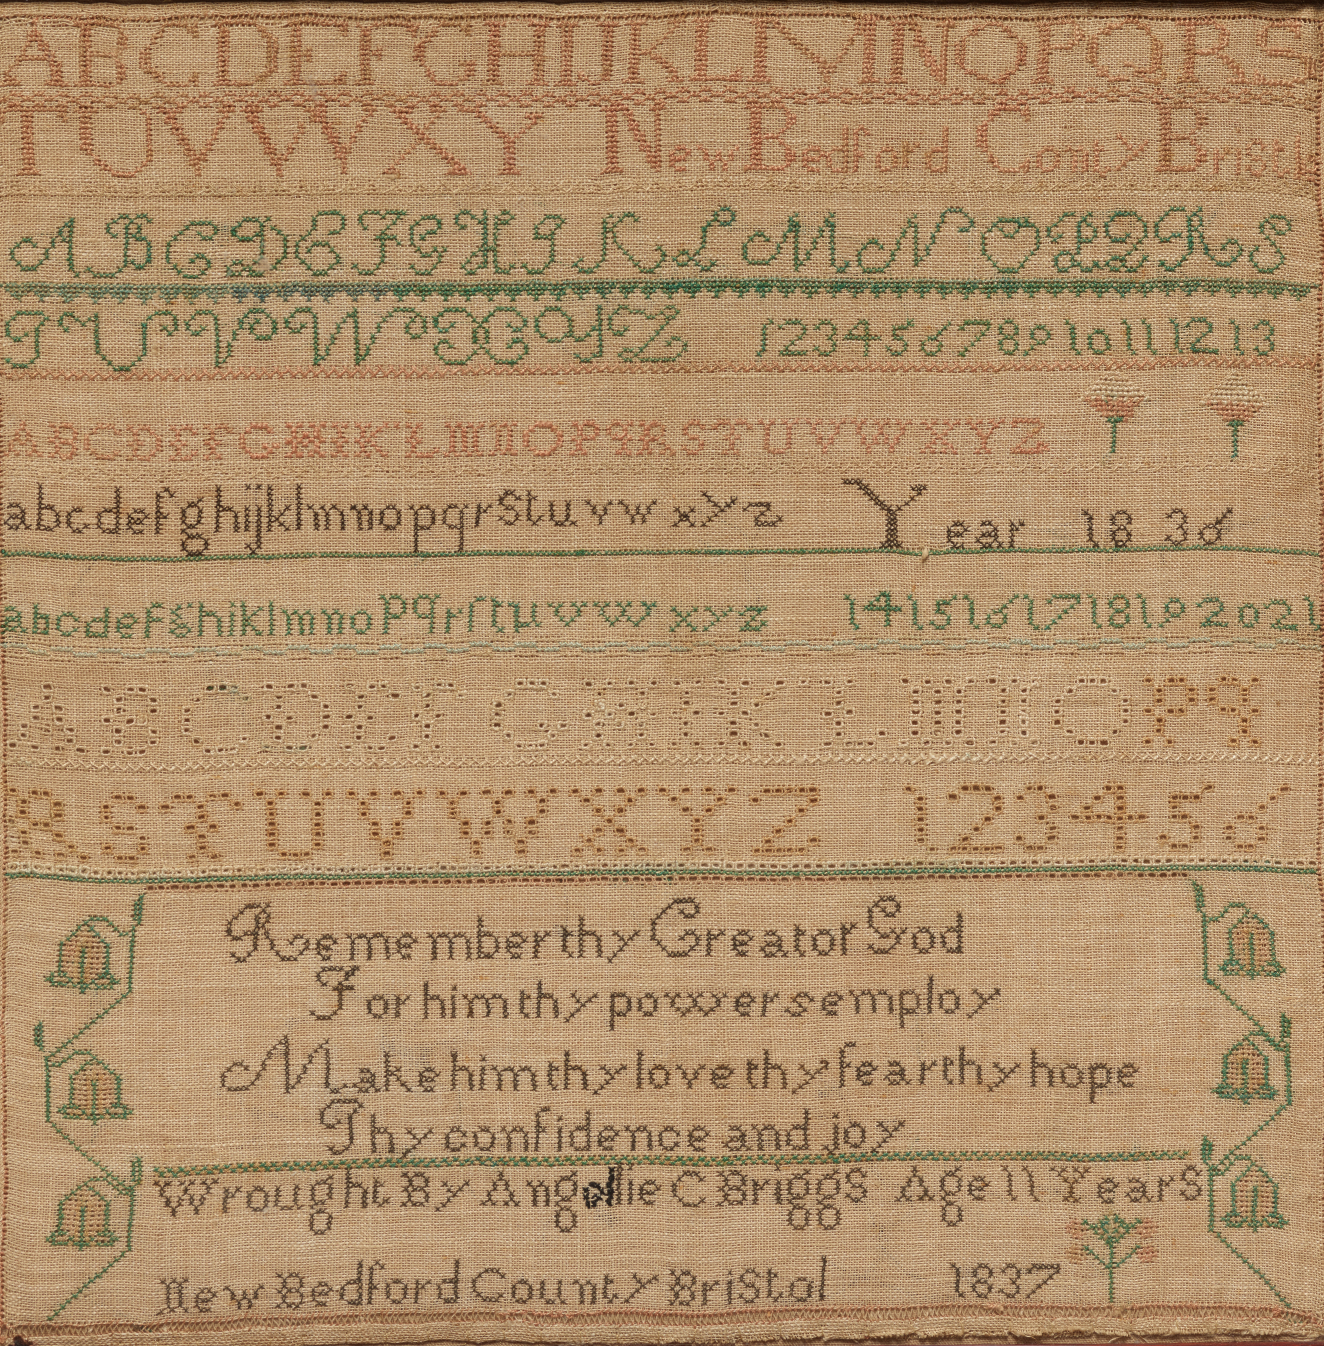 ABCDEFGHIJKLMNOPQRS
TUVWXY New Bedford Conty Bristl
ABCDEFGHIKLMNOPQRS
TUVWXYZ 12345678910111213
ABCDEFGHIKLMNOPQRSTUVWXYZ
abcdefghijklmnopqrstuvwxyz Year 1836
abcdefghiklmnopqrſtuvwxyz 1415161718192021
ABCDEFGHIKLMNOPQ
RSTUVWXYZ 123456
Remember thy Creator God
For him thy powers employ
Make him thy love thy fear thy hope
Thy confidence and joy
Wrought By C Briggs Age 11 Years
New Bedford County Bristol 1837